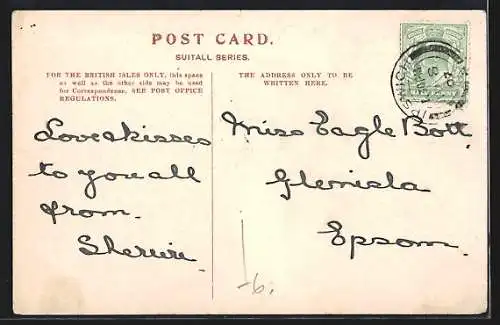 POST CARD.
SUITALL SERIES.
FOR THE BRITISH ISLES ONLY, this space
as well as the other side may be used
for Correspondence. SEE POST OFFICE
REGULATIONS.
THE ADDRESS ONLY TO BE
WRITTEN HERE.
Love & kisses
to you all
from
Miss Eagle Bott
Glenisla
Epsom.
-6.